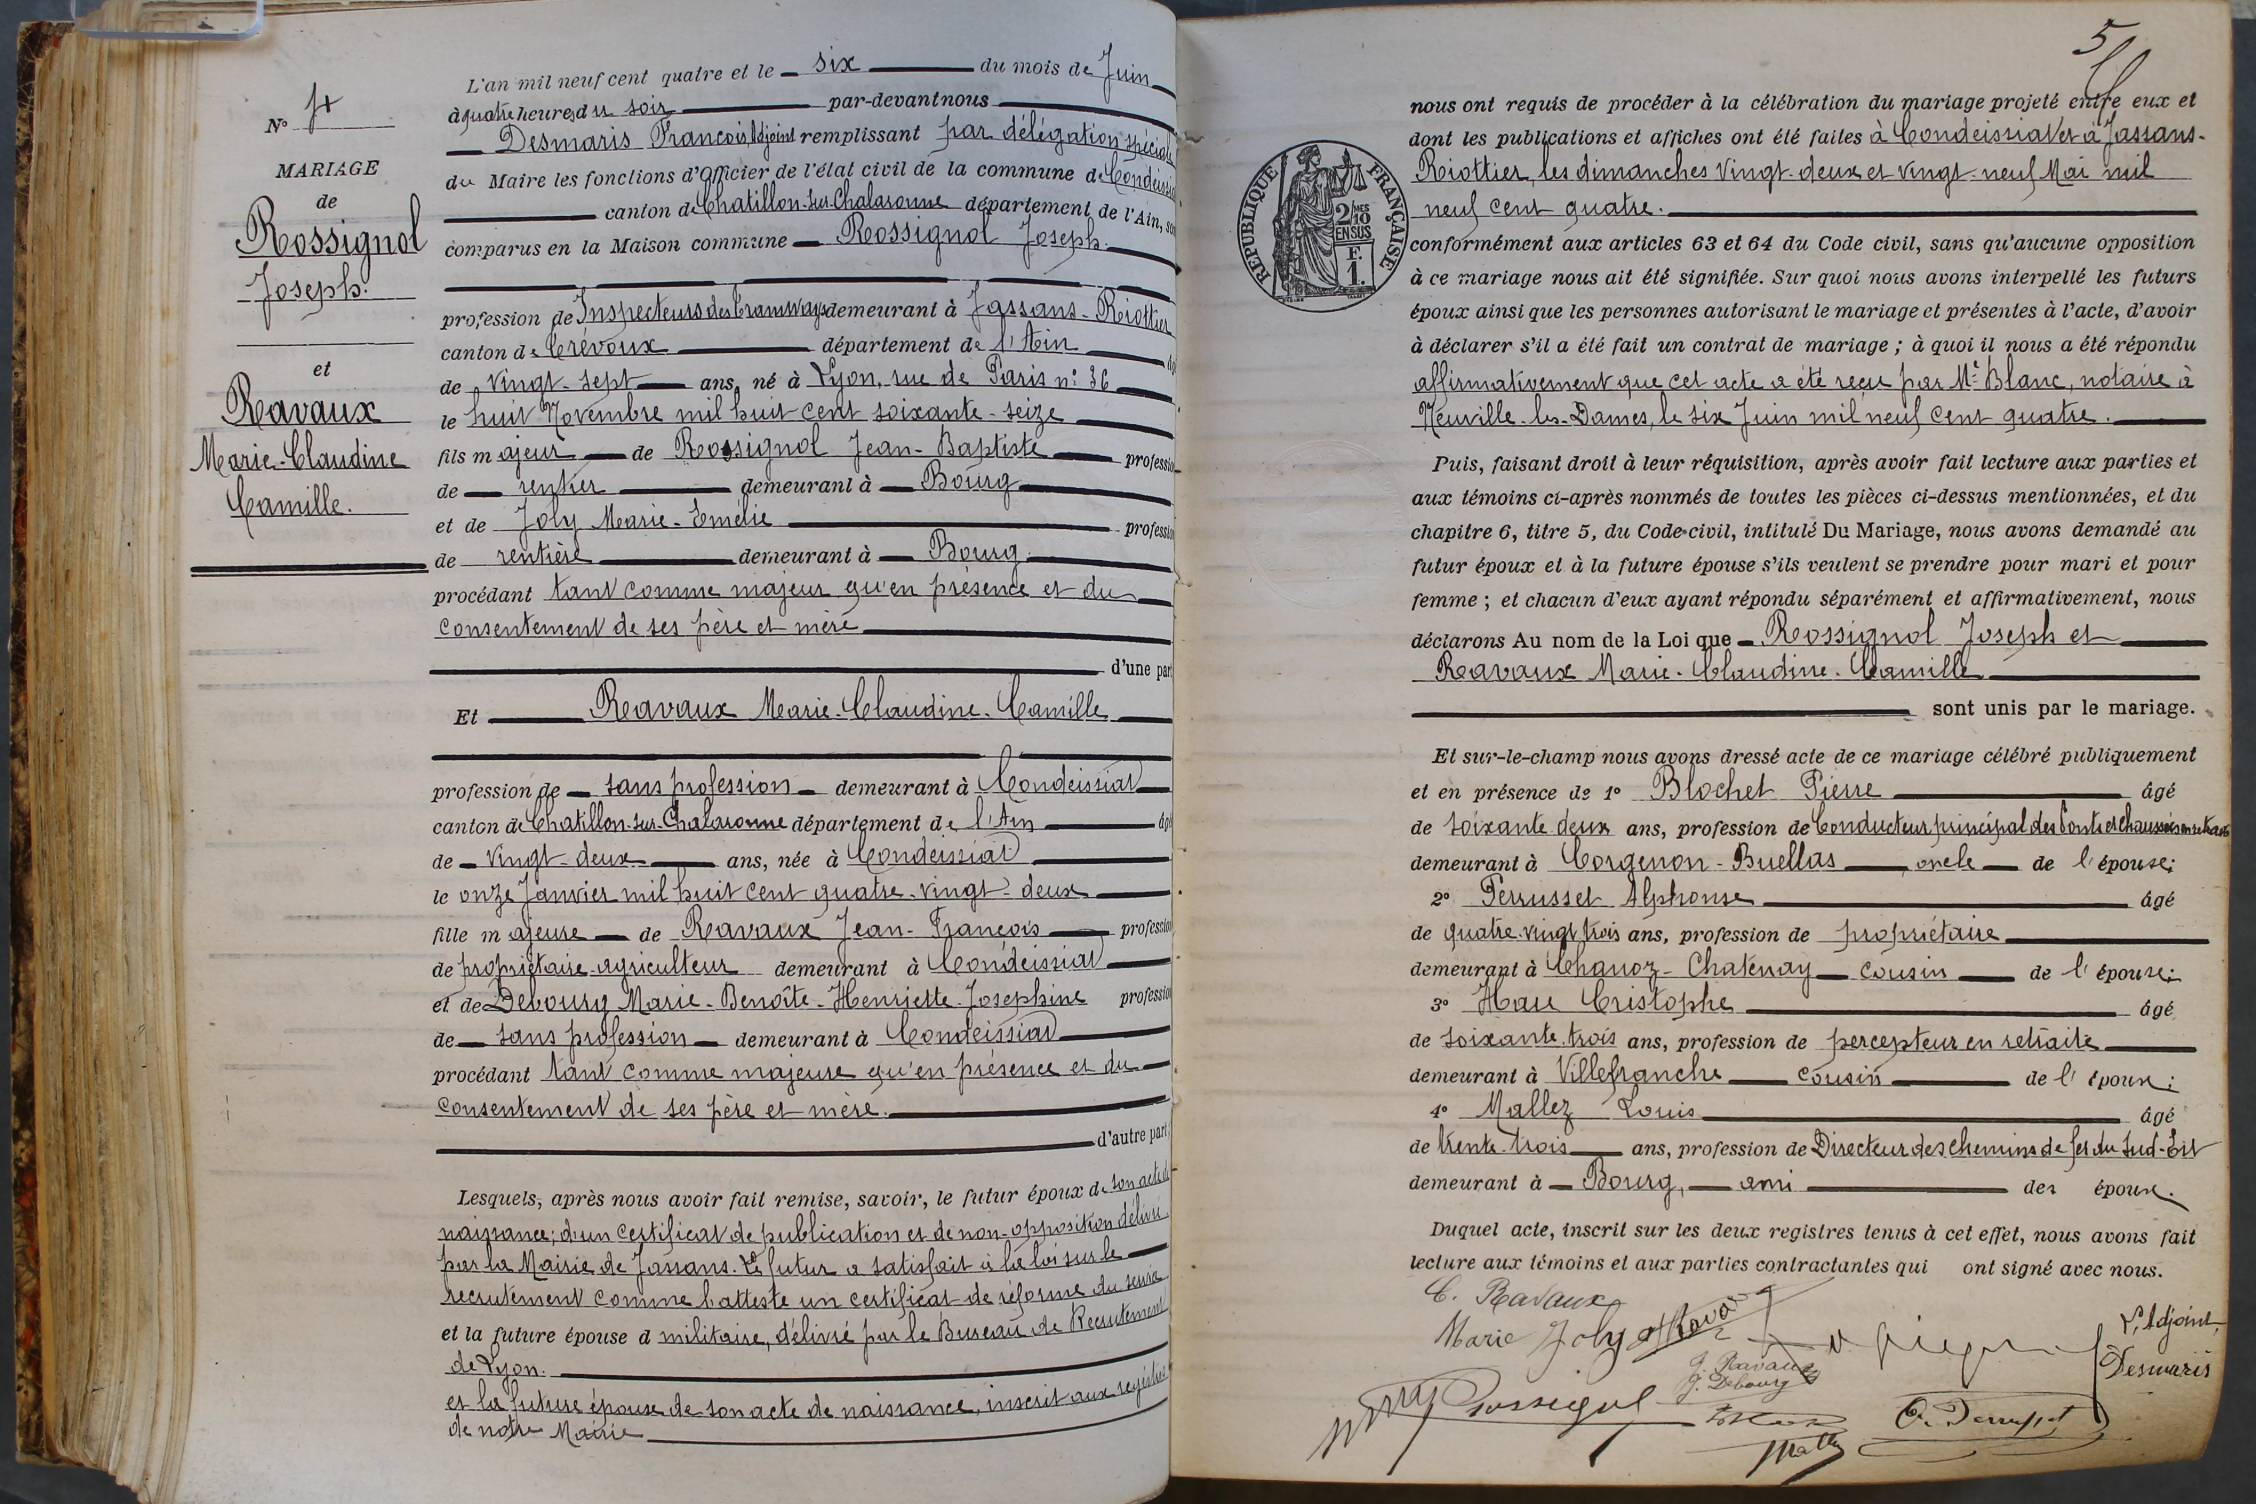 N° 4
MARIAGE
de
Rossignol
Joseph.
et
Ravaux
Marie-Claudine
Camille.
L'an mil neuf cent quatre et le six du mois de Juin
à quatre heures du soir par-devant nous
Desmaris François, Adjoint remplissant par délégation spéciale
du Maire les fonctions d'Officier de l'état civil de la commune de Condeissiat
canton de Chatillon-sur-Chalaronne département de l'Ain, sont
comparus en la Maison commune Rossignol Joseph.
profession de Inspecteurs des Tramways demeurant à Jassans-Riottier
canton de Trévoux département de l'Ain âgé
de vingt-sept ans, né à Lyon, rue de Paris n° 36
le huit Novembre mil huit cent soixante-seize
fils majeur de Rossignol Jean-Baptiste profession
de rentier demeurant à Bourg
et de Joly Marie-Emélie profession
de rentière demeurant à Bourg
procédant tant comme majeur qu'en présence et du
consentement de ses père et mère
d'une part
Et Ravaux Marie-Claudine-Camille
profession de sans profession demeurant à Condeissiat
canton de Chatillon-sur-Chalaronne département de l'Ain âgé
de vingt-deux ans, née à Condeissiat
le onze Janvier mil huit cent quatre-vingt-deux
fille majeure de Ravaux Jean-François profession
de propriétaire-agriculteur demeurant à Condeissiat
et de Debourg Marie-Benoîte-Henriette-Josephine profession
de sans profession demeurant à Condeissiat
procédant tant comme majeure qu'en présence et du
consentement de ses père et mère.
d'autre part;
Lesquels, après nous avoir fait remise, savoir, le futur époux de son acte de
naissance; d'un certificat de publication et de non-opposition délivré
par la Mairie de Jassans. Le futur a satisfait à la loi sur le
recrutement comme l'atteste un certificat de réforme du service
et la future épouse d militaire, délivré par le Bureau de Recrutement
de Lyon.
et la future épouse de son acte de naissance, inscrit aux registres
de notre Mairie
5
RÉPUBLIQUE FRANÇAISE
2/10 MES
EN SUS
F.
1.
nous ont requis de procéder à la célébration du mariage projeté entre eux et
dont les publications et affiches ont été faites à Condeissiat et à Jassans-
Riottier, les dimanches vingt-deux et vingt-neuf Mai mil
neuf cent quatre.
conformément aux articles 63 et 64 du Code civil, sans qu'aucune opposition
à ce mariage nous ait été signifiée. Sur quoi nous avons interpellé les futurs
époux ainsi que les personnes autorisant le mariage et présentes à l'acte, d'avoir
à déclarer s'il a été fait un contrat de mariage ; à quoi il nous a été répondu
affirmativement que cet acte a été reçu par Me Blanc, notaire à
Neuville-les-Dames, le six Juin mil neuf cent quatre.
Puis, faisant droit à leur réquisition, après avoir fait lecture aux parties et
aux témoins ci-après nommés de toutes les pièces ci-dessus mentionnées, et du
chapitre 6, titre 5, du Code civil, intitulé Du Mariage, nous avons demandé au
futur époux et à la future épouse s'ils veulent se prendre pour mari et pour
femme ; et chacun d'eux ayant répondu séparément et affirmativement, nous
déclarons Au nom de la Loi que Rossignol Joseph et
Ravaux Marie-Claudine-Camille
sont unis par le mariage.
Et sur-le-champ nous avons dressé acte de ce mariage célébré publiquement
et en présence de 1° Blochet Pierre âgé
de soixante deux ans, profession de Conducteur principal des Ponts et chaussées en retraite
demeurant à Corgenon-Buellas oncle de l'épouse;
2° Perrusset Alphonse âgé
de quatre-vingt trois ans, profession de propriétaire
demeurant à Chanoz-Chatenay cousin de l'épouse;
3° Hau Cristophe âgé
de soixante-trois ans, profession de percepteur en retraite
demeurant à Villefranche cousin de l'époux;
4° Mallez Louis âgé
de trente-trois ans, profession de Directeur des chemins de fer du Sud-Est
demeurant à Bourg, ami des époux.
Duquel acte, inscrit sur les deux registres tenus à cet effet, nous avons fait
lecture aux témoins et aux parties contractantes qui ont signé avec nous.
C. Ravaux
Marie Joly
J. Ravaux
J. Debourg
L'Adjoint,
Desmaris
Rossignol
Perrusset
Mallez